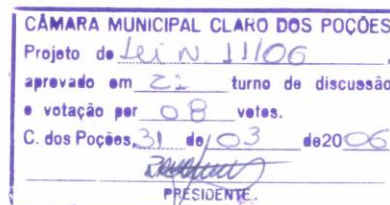 CÂMARA MUNICIPAL CLARO DOS POÇÕES
Projeto de Lei N 11/06
aprovado em 2º turno de discussão
e votação por 08 votos.
C. dos Poções, 31 de 03 de 2006
PRESIDENTE.